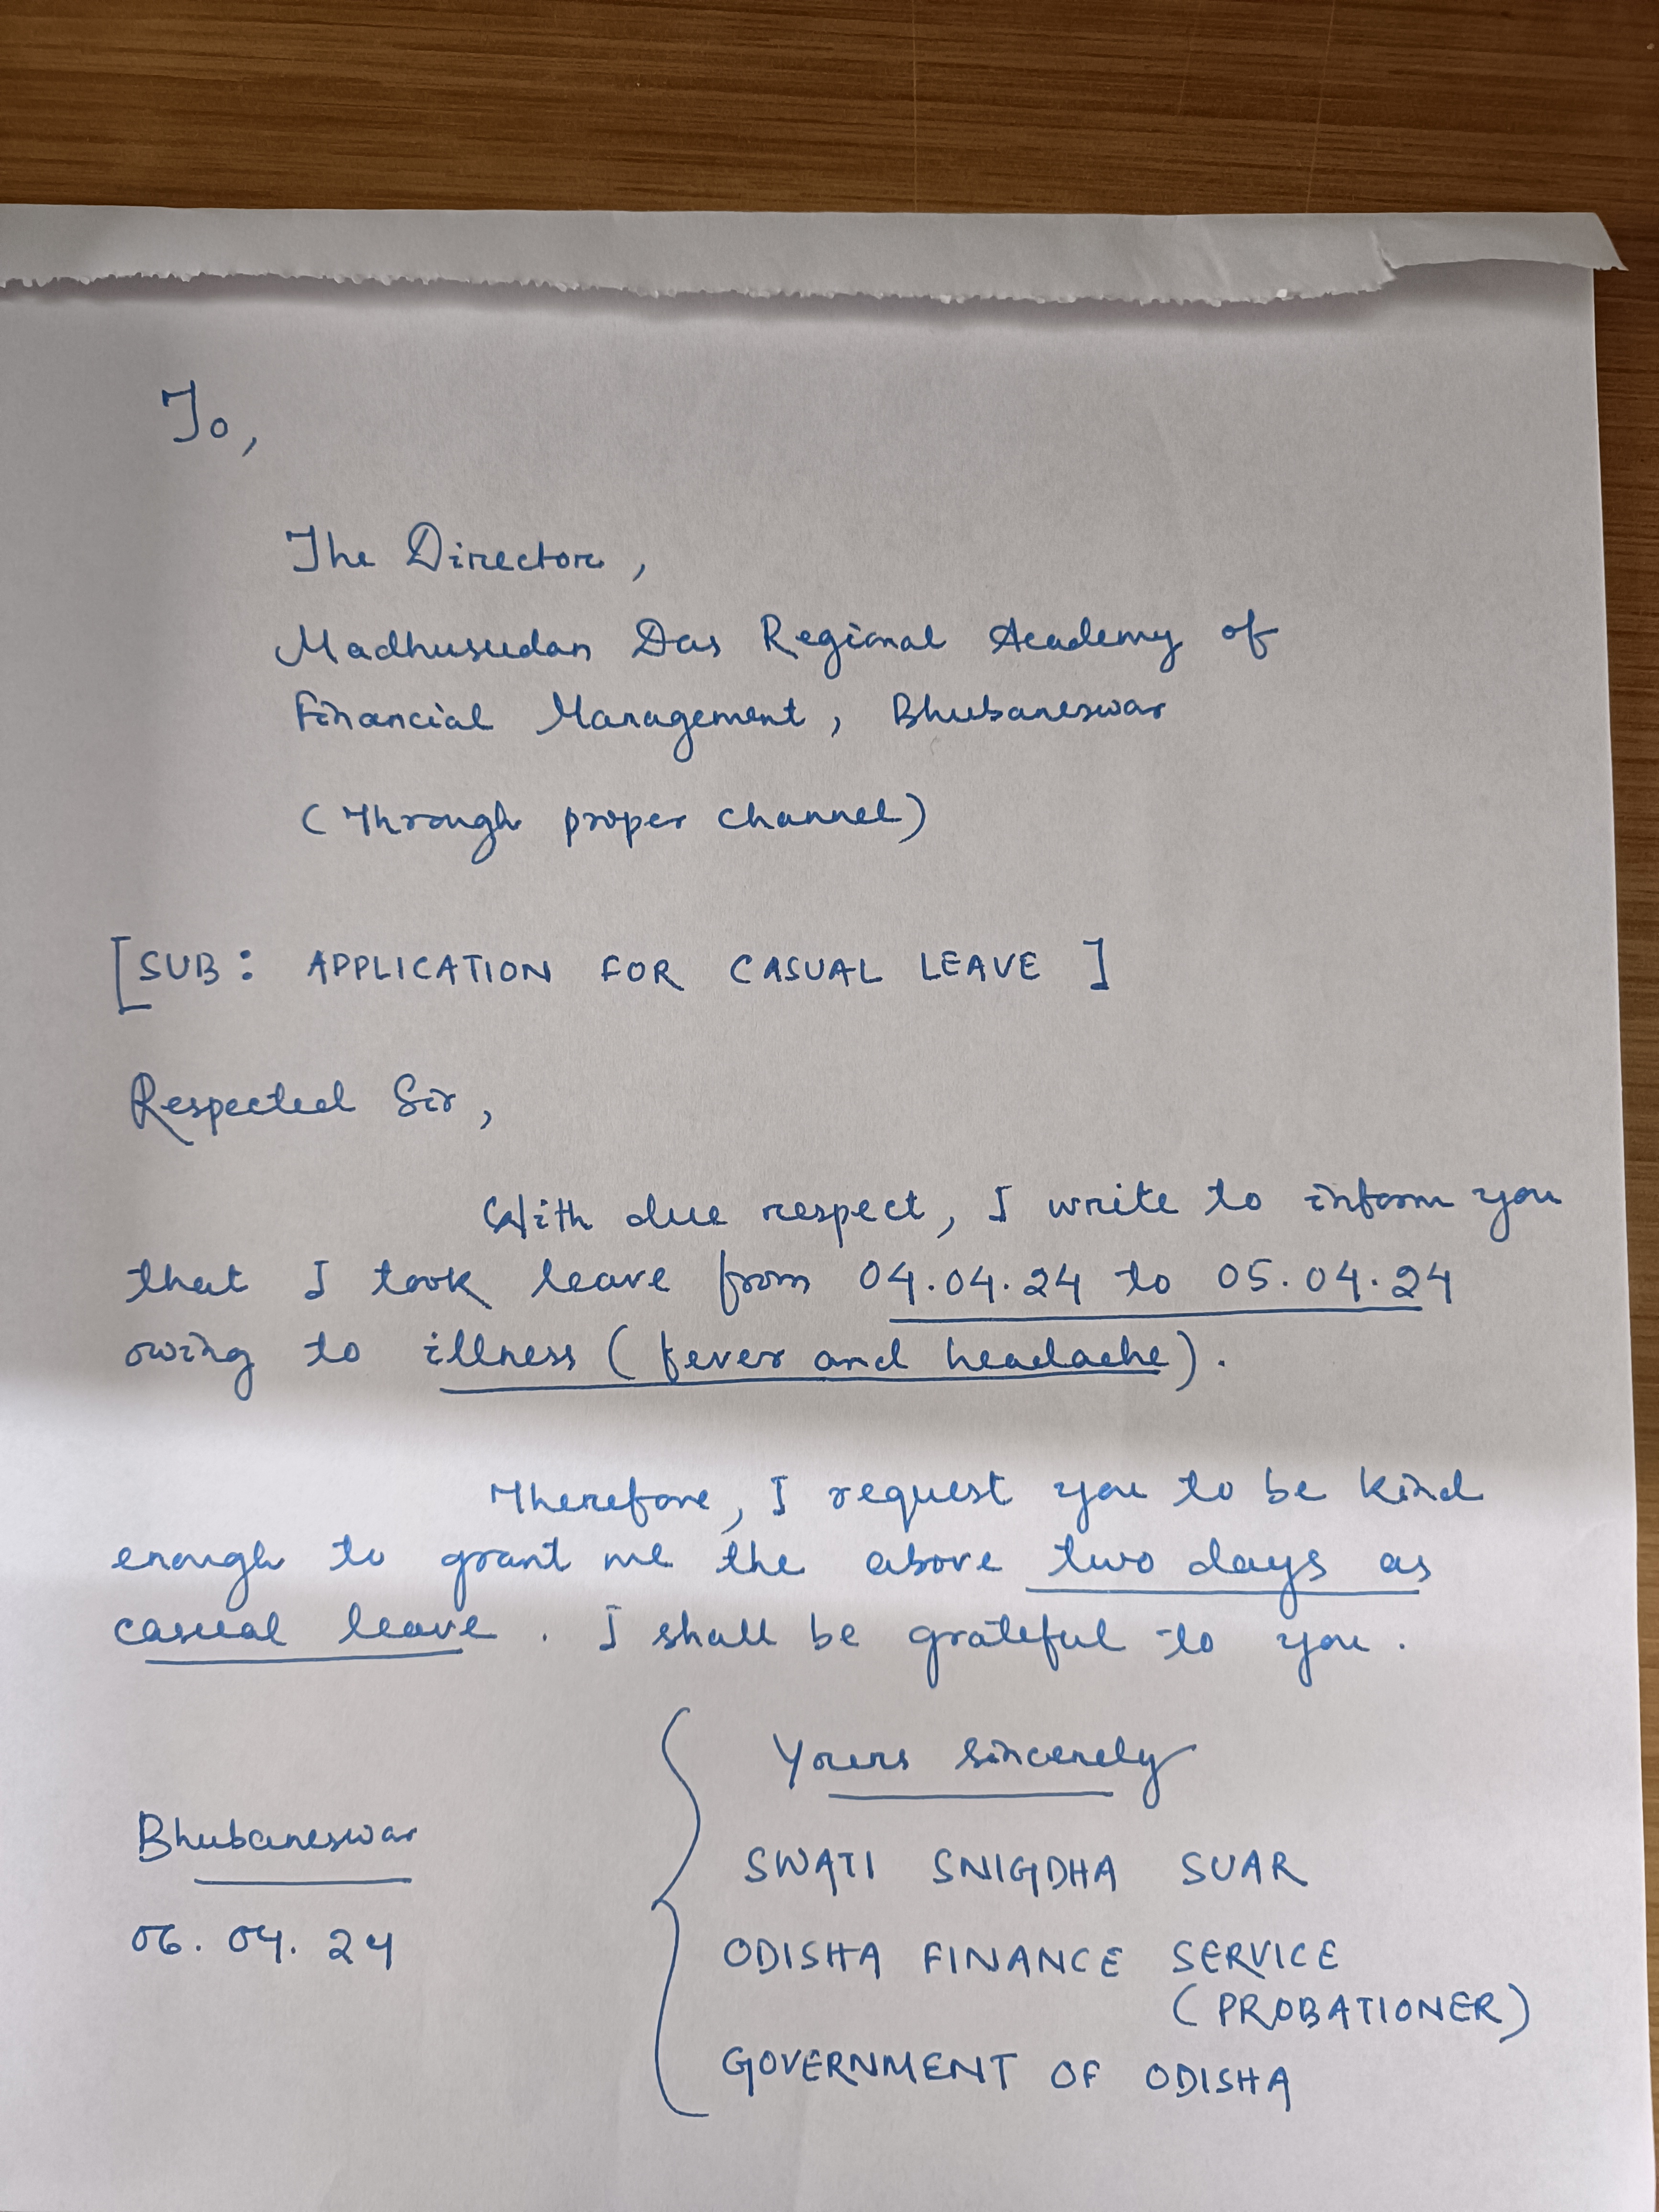 To,
The Director,
Madhusudan Das Regional Academy of
Financial Management, Bhubaneswar
(Through proper channel)
[SUB: APPLICATION FOR CASUAL LEAVE]
Respected Sir,
With due respect, I write to inform you
that I took leave from 04.04.24 to 05.04.24
owing to illness (fever and headache).
Therefore, I request you to be kind
enough to grant me the above two days as
casual leave. I shall be grateful to you.
Yours sincerely
Bhubaneswar
SWATI SNIGDHA SUAR
06.04.24
ODISHA FINANCE SERVICE
(PROBATIONER)
GOVERNMENT OF ODISHA